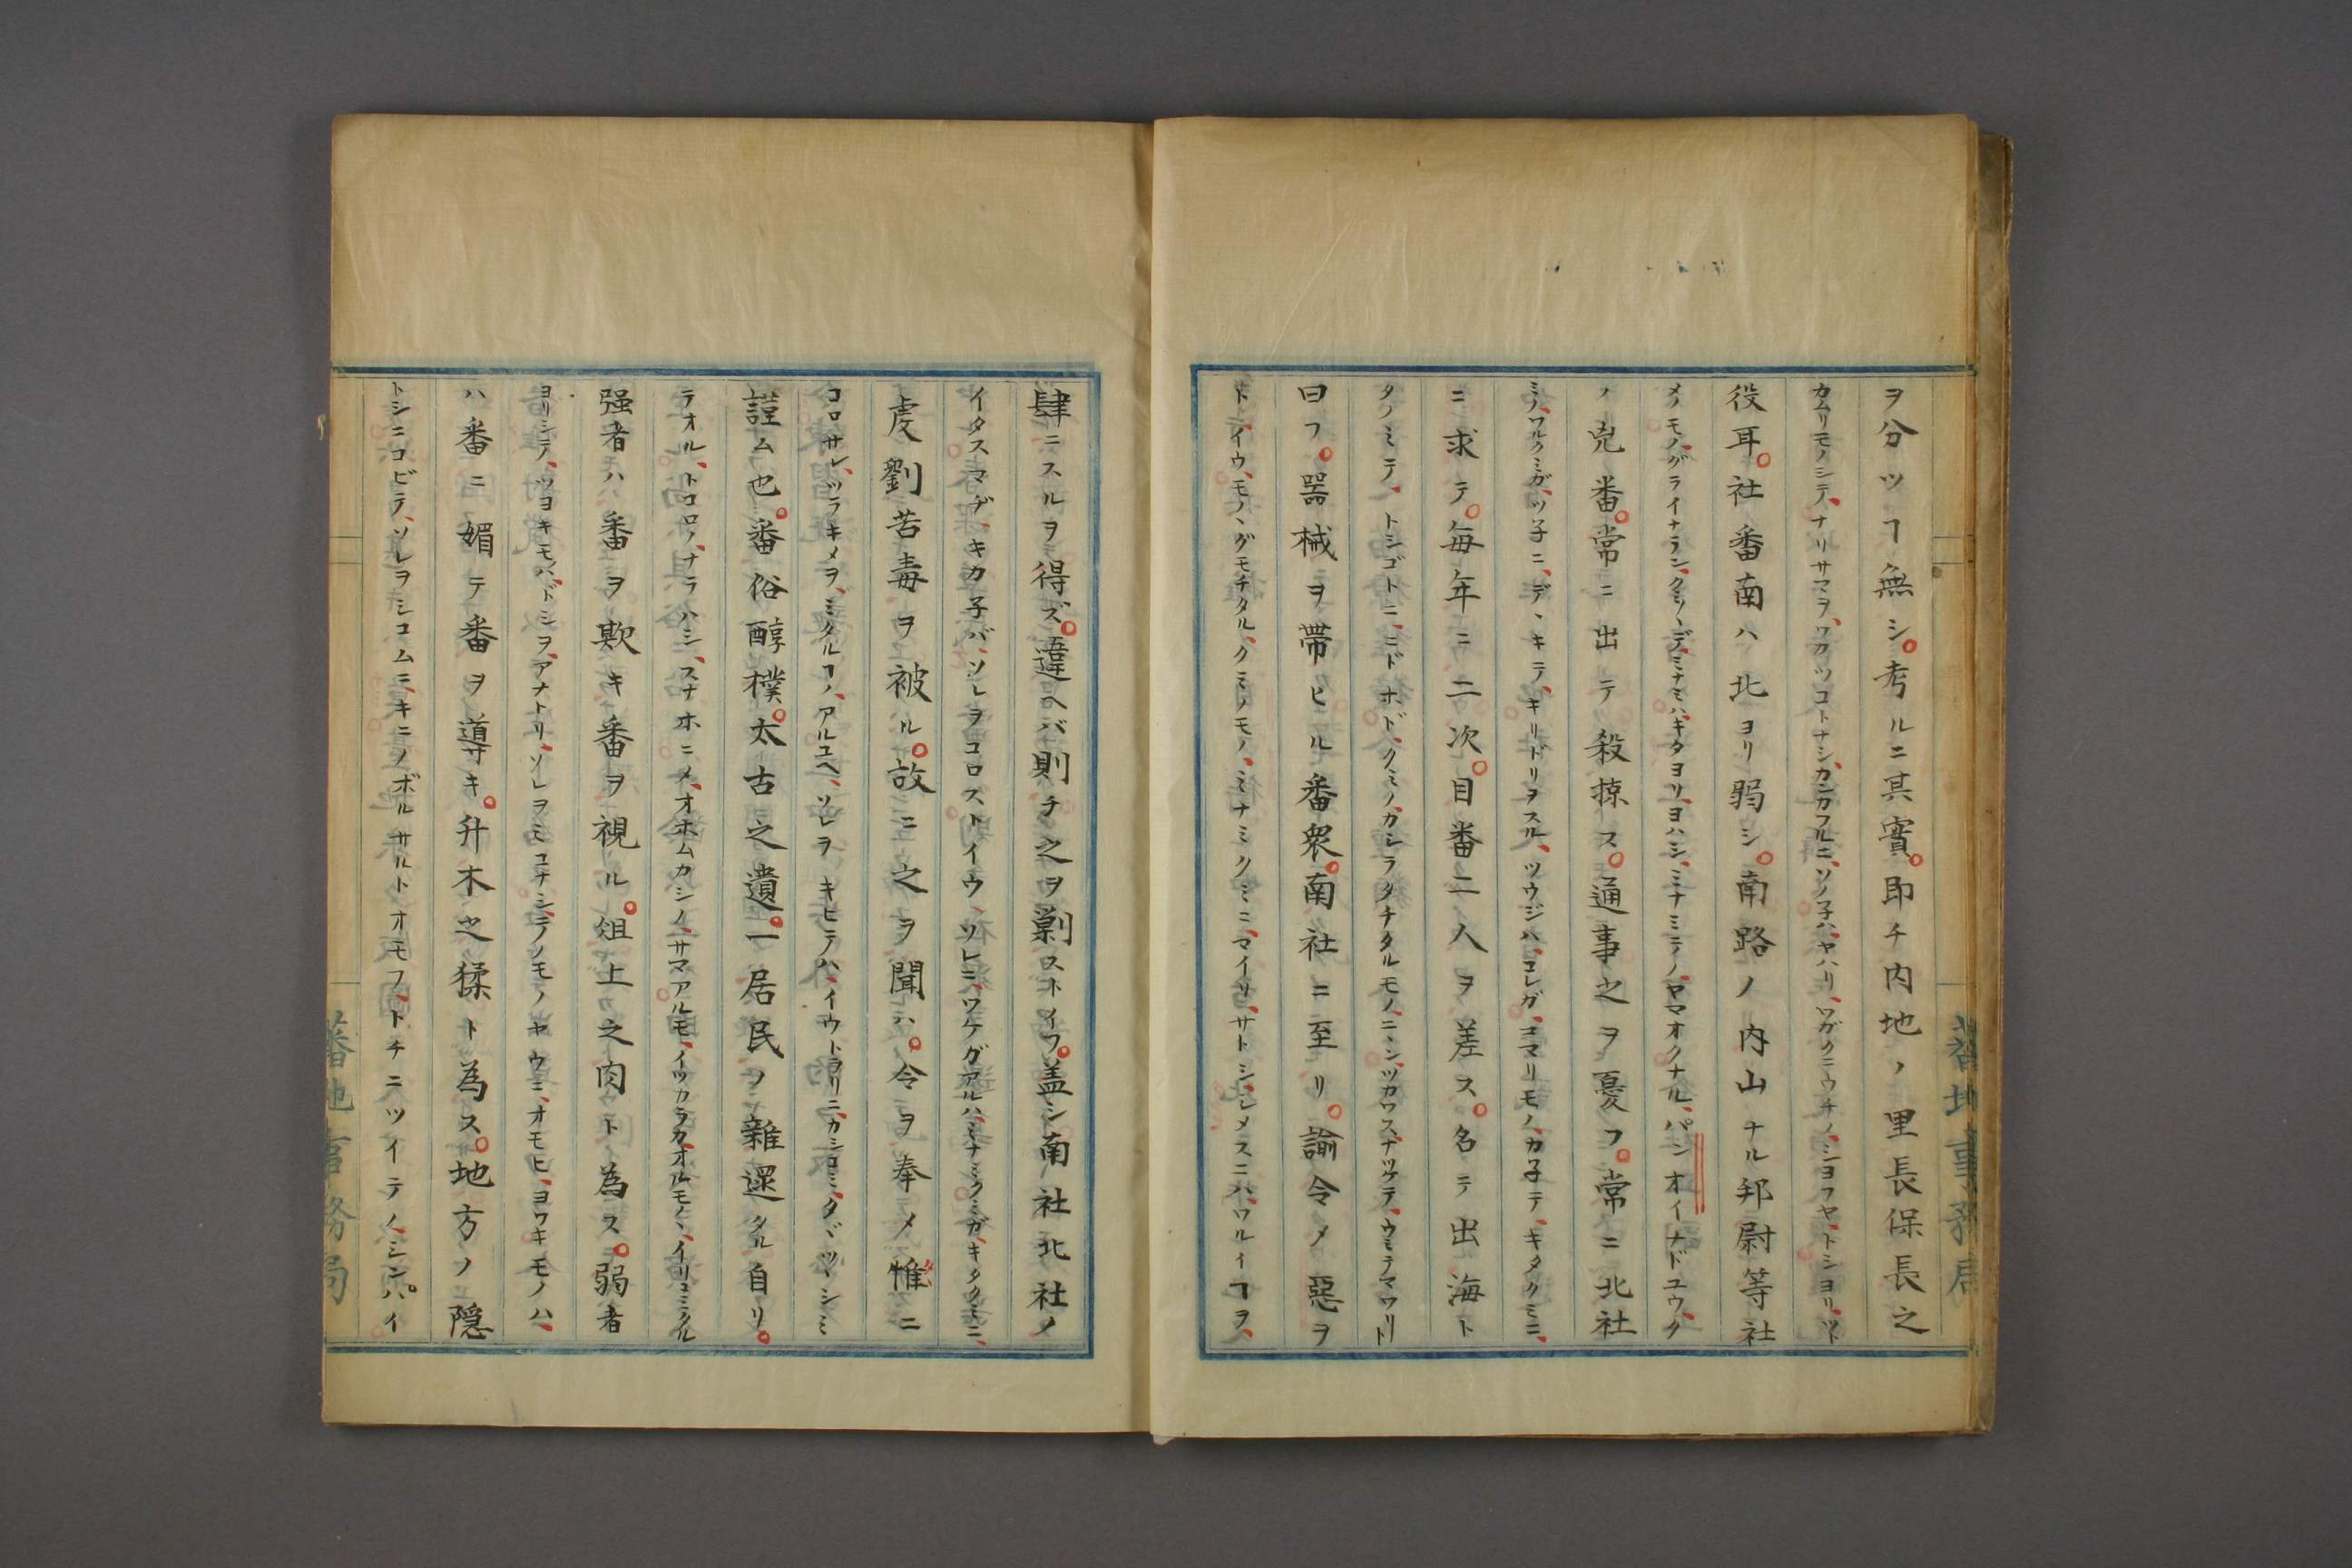 ヲ分ツヿ無シ。考ルニ其實。即チ内地ノ里長保長之
カムリモノシテ、ナリサマヲ、ワカツコトナシ、カンガフルニ、ソノ子ハ、ヤハリ、ワガクニウチノ、シヨフヤ、トシヨリ、ツト
役耳。社番南ハ北ヨリ弱シ。南路ノ内山ナル邦尉等社
メノモノ、グライナラン、クミノ、デ、ミナミハ、キタヨリ、ヨハシ、ミナミテノ、ヤマオクナル、パンオイナドユウ、ク
ノ兇番。常ニ出テ殺掠ス。通事之ヲ憂フ。常ニ北社
ミノ、ワルクミガ、ツ子ニ、デヽキテ、キリドリヲスル、ツウジハ、コレガ、コマリモノ、カ子テ、キタクミニ、
ニ求テ。毎年ニ二次。目番二人ヲ差ス。名テ出海ト
タノミテ、トシゴトニ、ニドホド、クミノ、カシラタチタルモノ、ニヽン、ツカワス、ナヅケテ、ウミテマワリト
曰フ。器械ヲ帯ビル番衆。南社ニ至リ。諭令メ惡ヲ
ト、イウ、モノ、グモチタル、クミノモノ、ミナミクミニ、マイリ、サトシ、シメスニハ、ワルイヿヲ、
肆ニスルヲ得ズ。違ヘバ則チ之ヲ剿スト イフ。盖シ南社北社ノ
イタスマヂ、キカ子バ、ソレヲコロストイウ、ソレニ、ワケガアルハ、ミナミクミガ、キタクミニ、
虔劉苦毒ヲ被ル。故ニ之ヲ聞ハ。令ヲ奉メ惟ニ
コロサレ、ツラキメヲ、ミタルヿノ、アルユヘ、ソレヲ キヒテハ、イウトヲリニ、カシコミ、タヾ、ツヽシミ
謹ム也。番俗醇樸。太古之遺。一居民ノ雜還タル自リ。
テオル、トコロノ、ナラハシ、スナホニメ、オホムカシノ、サマアルモ、イツカラカ、オルモノヽ、イリコミタル
强者ハ番ヲ欺キ番ヲ視ル。俎上之肉ト為ス。弱者
ヨリシテ、ツヨキモノハ、ドシヲ、アナトリ、ソレヲミコナシ、テノモノヤウニ、オモヒ、ヨワキモノハ、
ハ番ニ媚テ番ヲ導キ。升木之猱ト為ス。地方ノ隠
トシニコビテ、ソレヲシコムニ、キニノボルサルトオモフ、トチニツイテノ、シンパイ
蕃地事務局
蕃地事務局